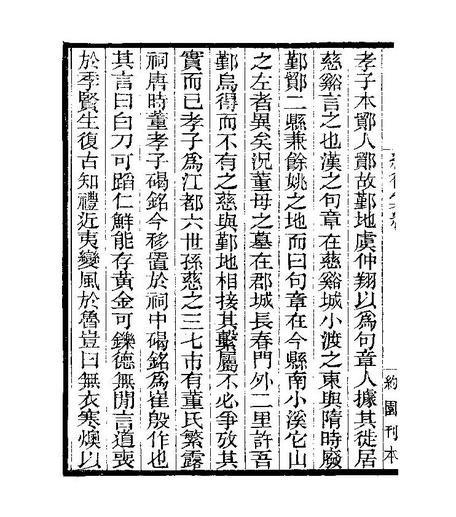 孝子本鄞人鄮故鄞地虞仲翔以爲句章人據其徙居
慈谿言之也漢之句章在慈谿城小渡之東與隋時廢
鄞鄮二縣兼餘姚之地而曰句章在今縣南小溪它山
之左者異矣況董母之墓在郡城長春門外二里許吾
鄞烏得而不有之慈與鄞地相接其繫屬不必爭攷其
實而已孝子爲江都六世孫慈之三七市有董氏繁露
祠唐時董孝子碣銘今移置於祠中碣銘爲崔殷作也
其言曰白刀可蹈仁鮮能存黃金可鑠德無閒言道喪
於季賢生復古知禮近夷變風於魯豈曰無衣寒燠以
約園刊本